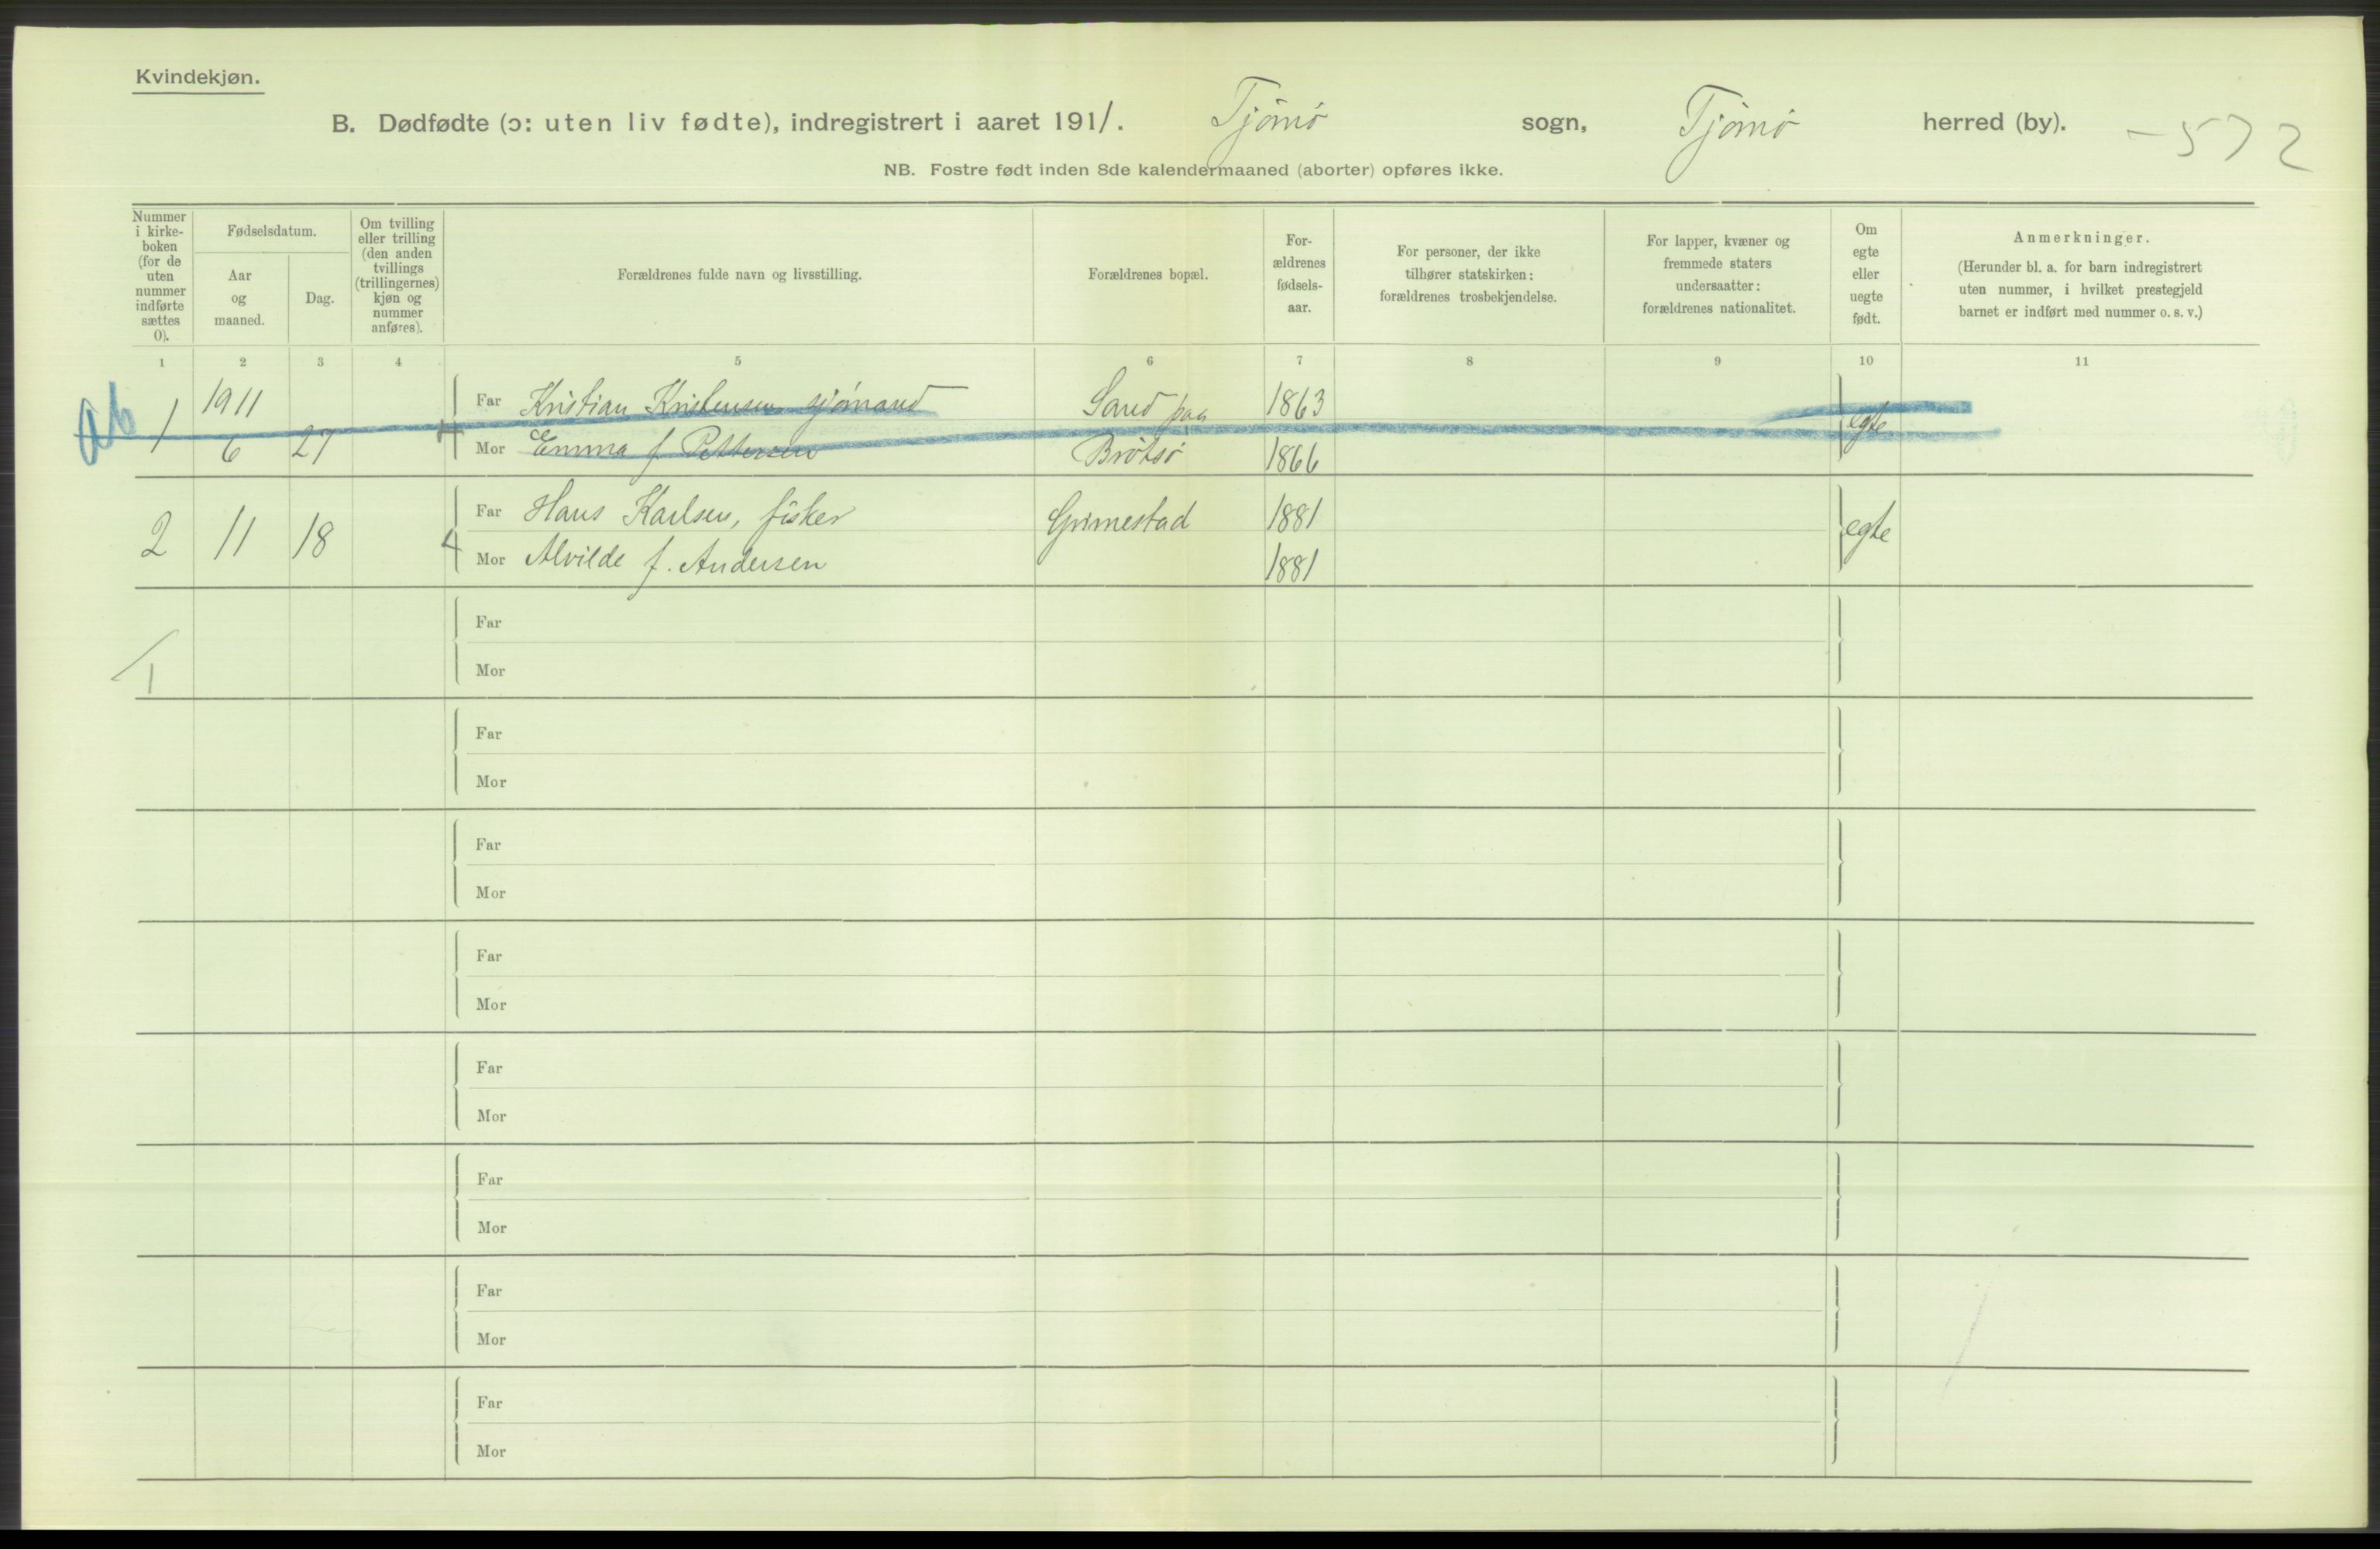 Kvindekjøn.
B. Dødfødte (ɔ: uten liv fødte), indregistrert i aaret 1911. Tjömö sogn, Tjömö herred (by). -572
NB. Fostre født inden 8de kalendermaaned (aborter) opføres ikke.
Nummer
i kirke-
boken
(for de
uten
nummer
indførte
sættes
0).
Fødselsdatum.
Aar
og
maaned.
Dag.
Om tvilling
eller trilling
(den anden
tvillings
(trillingernes)
kjøn og
nummer
anføres).
Forældrenes fulde navn og livsstilling.
Forældrenes bopæl.
For-
ældrenes
fødsels-
aar.
For personer, der ikke
tilhører statskirken:
forældrenes trosbekjendelse.
For lapper, kvæner og
fremmede staters
undersaatter:
forældrenes nationalitet.
Om
egte
eller
uegte
født.
Anmerkninger.
(Herunder bl. a. for barn indregistrert
uten nummer, i hvilket prestegjeld
barnet er indført med nummer o. s. v.)
1 2 3 4 5 6 7 8 9 10 11
ab 1 1911 Far Kristian Kristensen sjömand Sand paa 1863 egte
6 27 4 Mor Emma f Pettersen Brötsö 1866
2 11 18 Far Hans Karlsen, fisker Grimestad 1881 egte
4 Mor Alvilde f. Andersen 1881
Far
1
Mor
Far
Mor
Far
Mor
Far
Mor
Far
Mor
Far
Mor
Far
Mor
Far
Mor